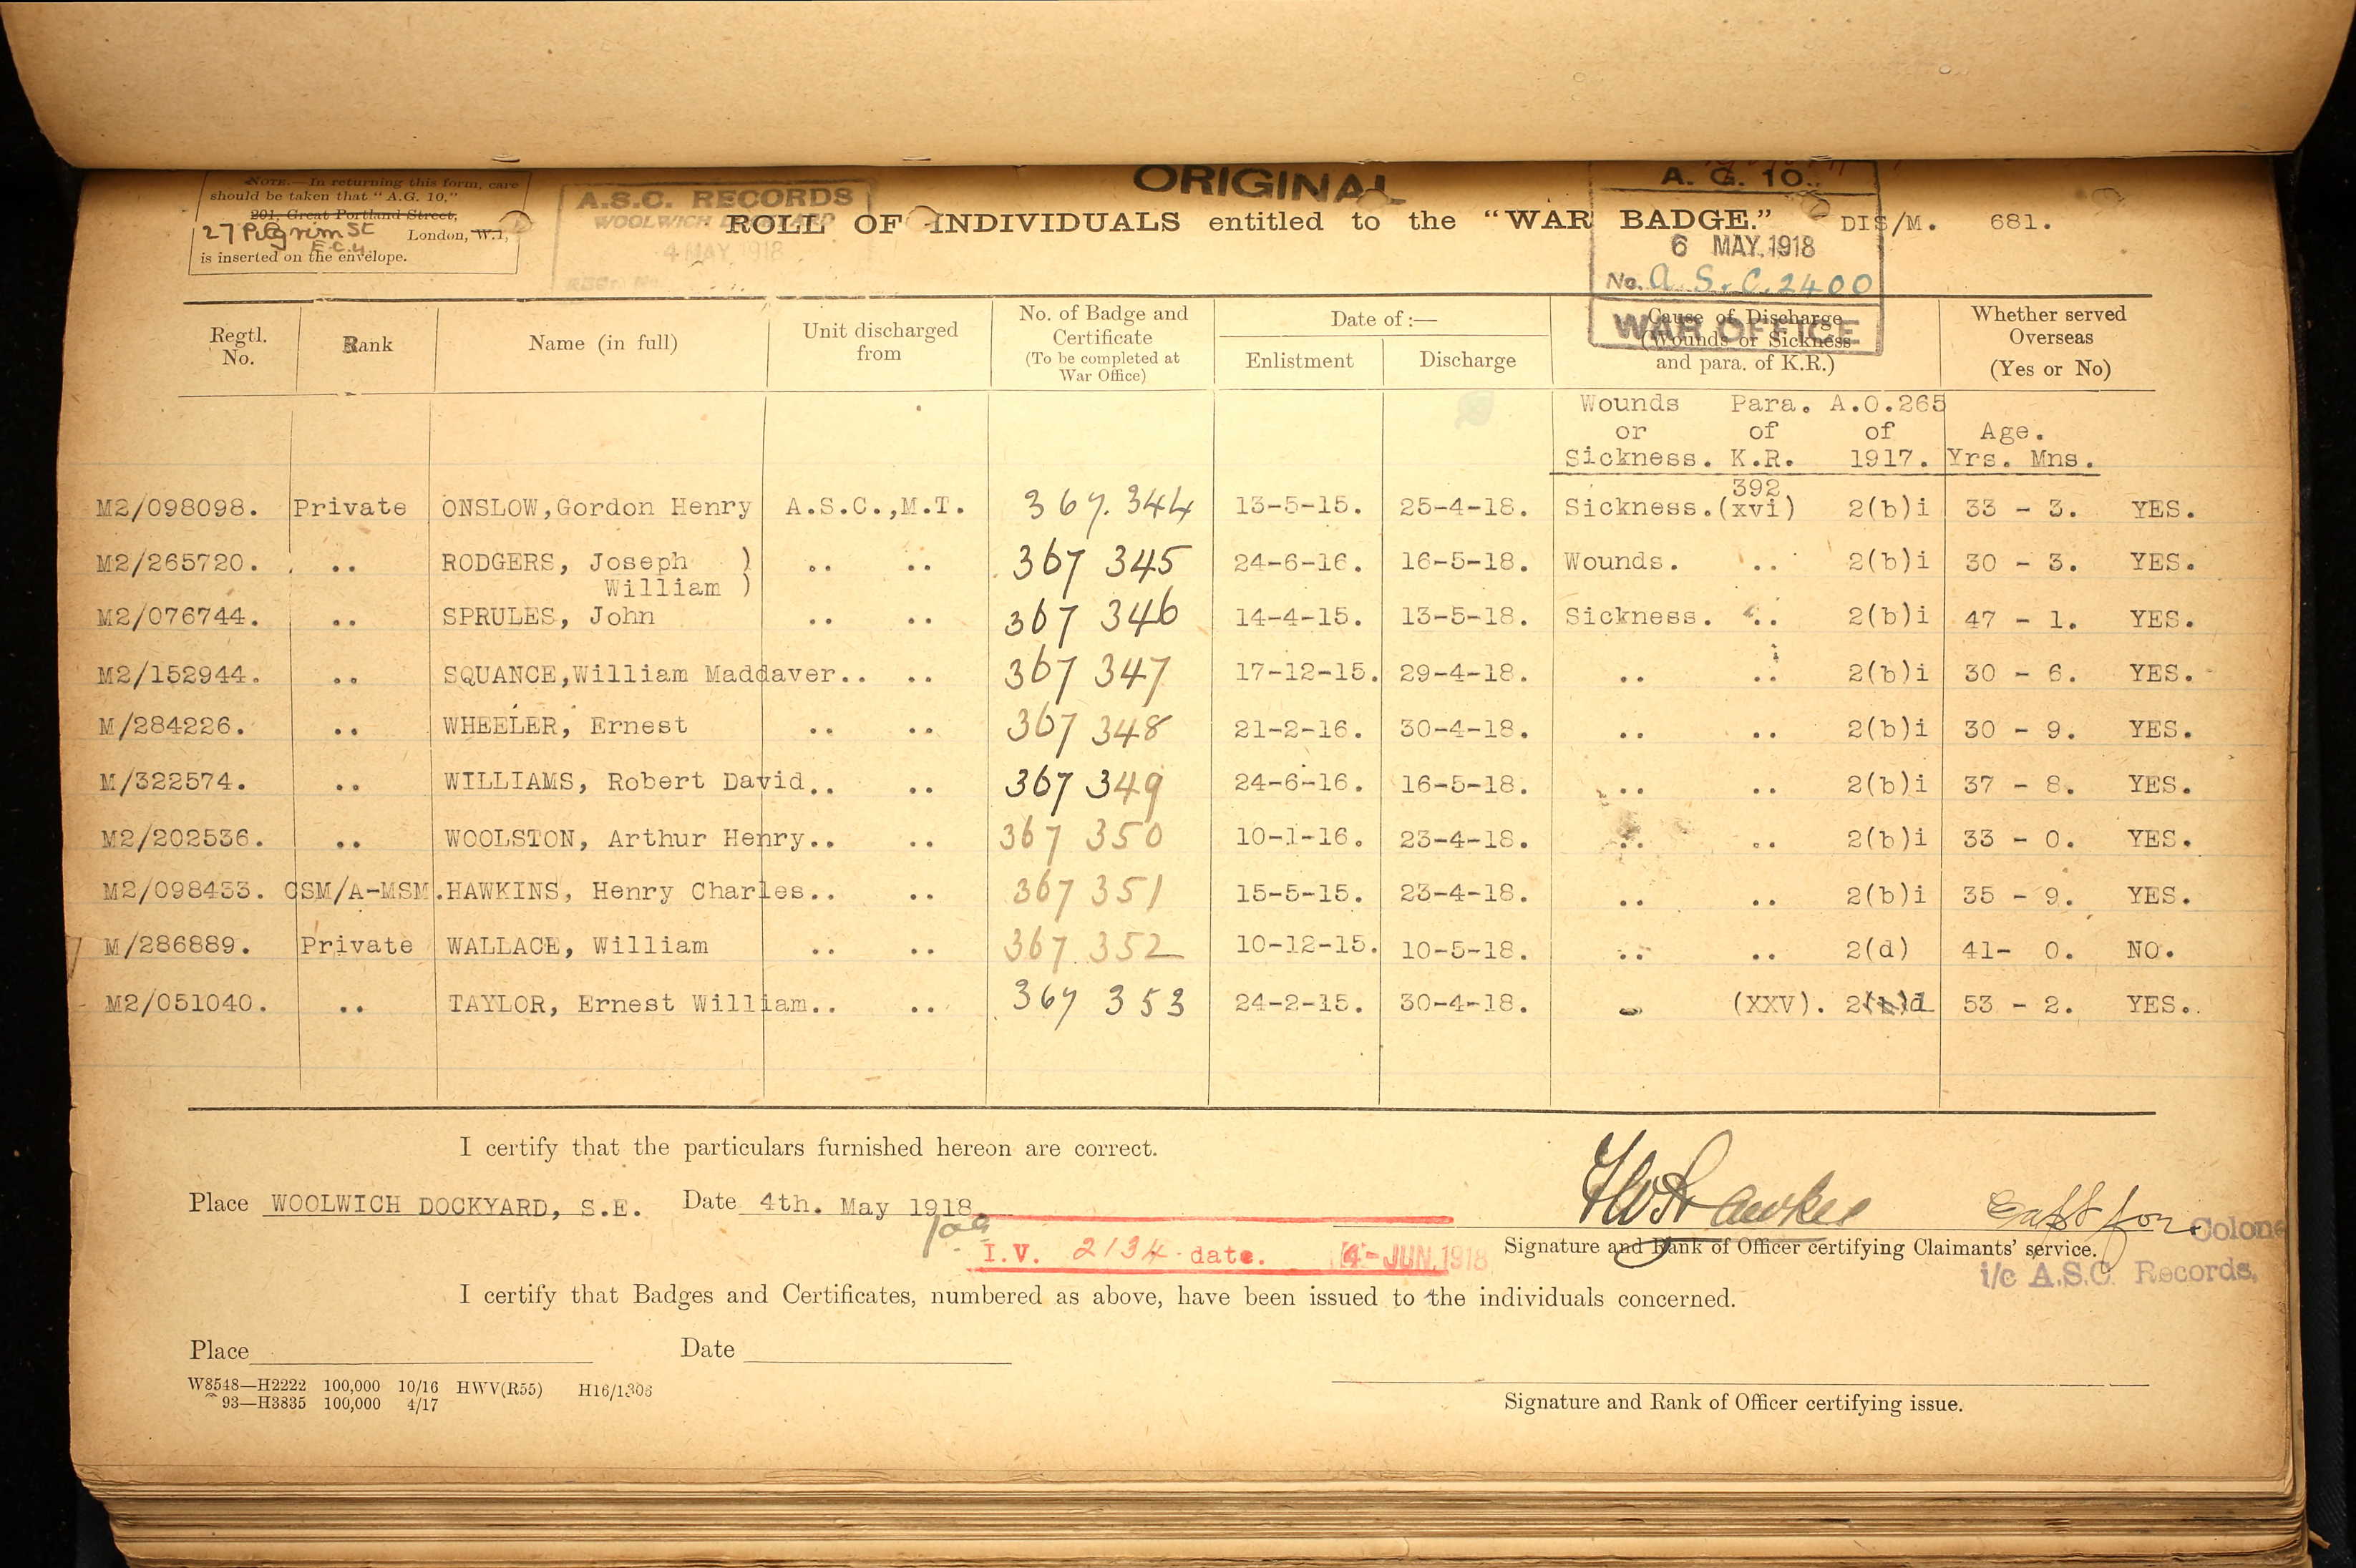 ORIGINAL
NOTE.—In returning this form, care
should be taken that "A.G. 10."
201, Great Portland Street,
27 Pilgrim St London, W.1,
E.C.4.
is inserted on the envelope.
A.S.C. RECORDS
WOOLWICH DOCKYARD
4 MAY 1918
A. G. 10.
6 MAY.1918
No. A.S.C.2400
WAR OFFICE
ROLL OF INDIVIDUALS entitled to the "WAR BADGE." DIS/M. 681.
Regtl. No. Rank Name (in full) Unit discharged from No. of Badge and Certificate (To be completed at War Office) Date of :— Enlistment Discharge Cause of Discharge (Wounds or Sickness and para. of K.R.) Whether served Overseas (Yes or No)
Wounds Para. A.O.265
or of of Age.
Sickness. K.R. 1917. Yrs. Mns.
392
M2/098098. Private ONSLOW,Gordon Henry A.S.C.,M.T. 367.344 13-5-15. 25-4-18. Sickness.(xvi) 2(b)i 33 - 3. YES.
M2/265720. .. RODGERS, Joseph ) .. .. 367 345 24-6-16. 16-5-18. Wounds. .. 2(b)i 30 - 3. YES.
William )
M2/076744. .. SPRULES, John .. .. 367 346 14-4-15. 13-5-18. Sickness. .. 2(b)i 47 - 1. YES.
M2/152944. .. SQUANCE,William Maddaver.. .. 367 347 17-12-15. 29-4-18. .. .. 2(b)i 30 - 6. YES.
M/284226. .. WHEELER, Ernest .. .. 367 348 21-2-16. 30-4-18. .. .. 2(b)i 30 - 9. YES.
M/322574. .. WILLIAMS, Robert David.. .. 367 349 24-6-16. 16-5-18. .. .. 2(b)i 37 - 8. YES.
M2/202536. .. WOOLSTON, Arthur Henry.. .. 367 350 10-1-16. 23-4-18. .. .. 2(b)i 33 - 0. YES.
M2/098433. CSM/A-MSM.HAWKINS, Henry Charles.. .. 367 351 15-5-15. 23-4-18. .. .. 2(b)i 35 - 9. YES.
M/286889. Private WALLACE, William .. .. 367.352 10-12-15. 10-5-18. .. .. 2(d) 41- 0. NO.
M2/051040. .. TAYLOR, Ernest William.. .. 367 353 24-2-15. 30-4-18. .. (XXV). 2(b)d 53 - 2. YES.
I certify that the particulars furnished hereon are correct.
Place WOOLWICH DOCKYARD, S.E. Date 4th. May 1918
I.V. 2134 date. 4-JUN.1918
Capt for Colonel
Signature and Rank of Officer certifying Claimants' service.
i/c A.S.C. Records.
I certify that Badges and Certificates, numbered as above, have been issued to the individuals concerned.
Place Date
W8548—H2222 100,000 10/16 HWV(R55) H16/1306
93—H3835 100,000 4/17
Signature and Rank of Officer certifying issue.